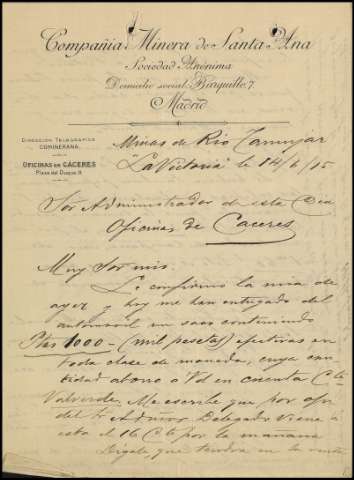 Compañía Minera de Santa Ana
Sociedad Anónima
Domicilio social: Barquillo, 7
Madrid
DIRECCIÓN TELEGRÁFICA
COMINERANA.
OFICINAS EN CÁCERES
Plaza del Duque 9
Minas de Rio Tamujar
"La Victoria" le 14/6/15
Sor Administrador de esta Cia
Oficinas de Caceres
Muy Sor mio.
Le confirmo la mia de
ayer y hoy me han entregado del
automovil un saco conteniendo
Ptas 1000 - (mil pesetas) efectivas en
toda clase de moneda, cuya can
tidad abono a Vd en cuenta Cte
Valverde. Me escribe que por
del Sr Delegado Viene a
esta el 16 Ct por la mañana
Digale, que tendra en la